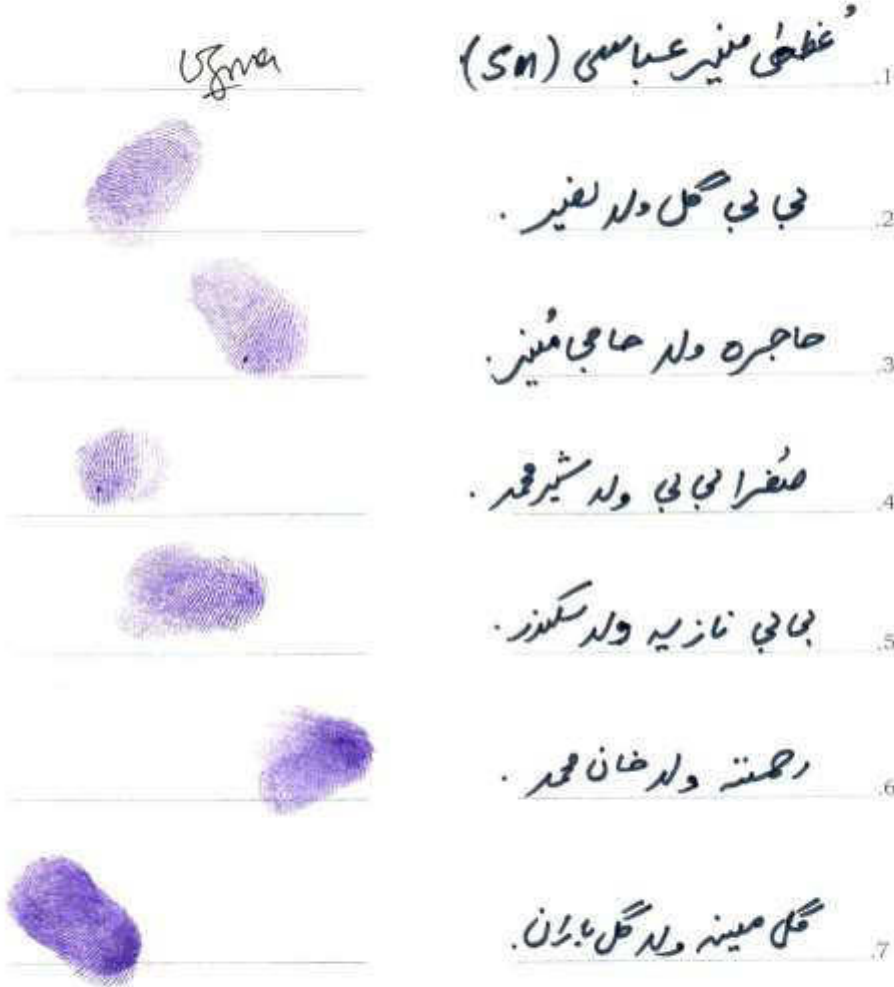 .1 عظمٰی منیر عباسی (SM) Uzma
.2 بی بی گل ولد نصیر .
.3 حاجرہ ولد حاجی مُنیر .
.4 صُغرا بی بی ولد شیر محمد .
.5 بی بی نازیہ ولد سکندر .
.6 رحمتہ ولد خان محمد .
.7 گل مینہ ولد گل باران .